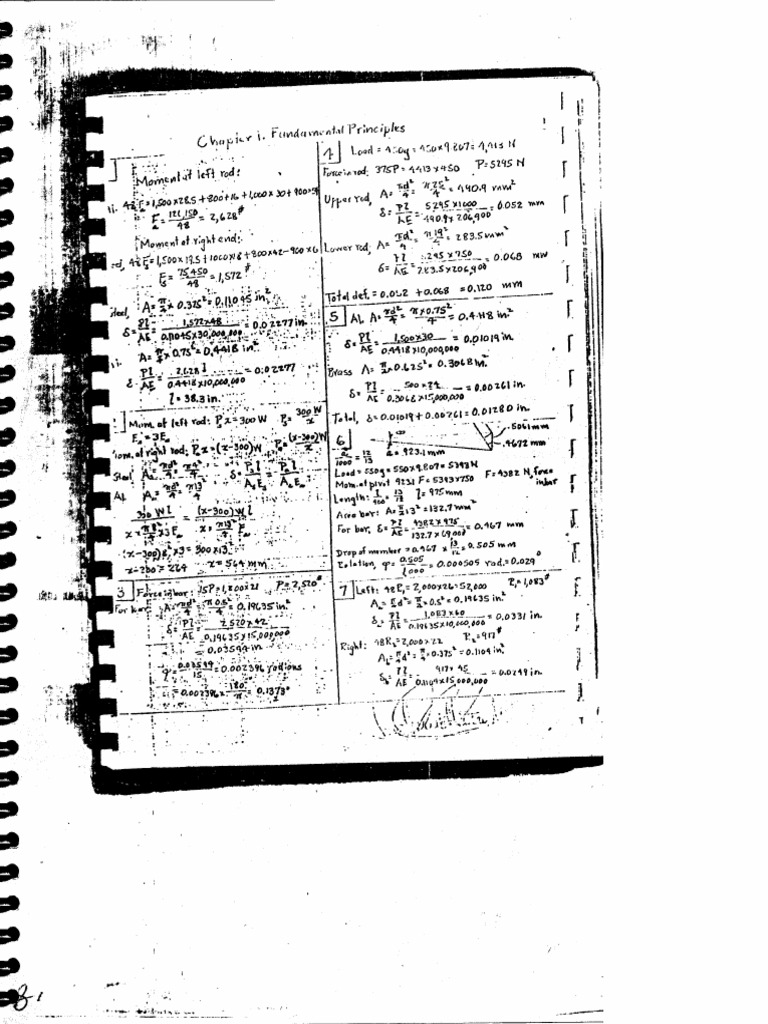 Chapter 1. Fundamental Principles
Moment at left rod:
48F=1,500×28.5+800×16+1,000×30+900×54
F=121,150/48=2,628#
Moment at right end:
48F=1,500×19.5+1000×18+800×42-900×6
F=75450/48=1,572#
Steel, A=π/4×0.375²=0.11045 in²
δ=Pl/AE=1,572×48/0.11045×30,000,000=0.02277 in.
A=π/4×0.75²=0.4418 in²
δ=Pl/AE=2,628 l/0.4418×10,000,000=0.02277
l=38.3 in.
Mom. of left rod: Px=300W P=300W/x
E=3E
Mom. of right rod: Px=(x-300)W P=(x-300)W/x
Steel A=πd²/4=π8²/4 δ=Pl/AE=Pl/AE
AL A=π13²/4
300Wl/x×π8²/4×3E=(x-300)Wl/x×π13²/4 E
(x-300)8²×3=300×13²
x-300=264 x=564 mm
3
Force in bar: 15P=1,800×21 P=2,520#
For bar A=πd²/4=π0.5²/4=0.19635 in²
δ=Pl/AE=2520×42/0.19635×15,000,000
=0.03594 in
φ=0.03594/15=0.002396 radians
=0.002396×180/π=0.1373°
4
Load=450g=450×9.807=4,413 N
Force in rod: 375P=4413×450 P=5295 N
Upper rod, A=πd²/4=π25²/4=490.9 mm²
δ=Pl/AE=5295×1000/490.9×206,900=0.052 mm
Lower rod, A=πd²/4=π19²/4=283.5 mm²
δ=Pl/AE=5295×750/283.5×206,900=0.068 mm
Total def.=0.052+0.068=0.120 mm
5
AL A=πd²/4=π×0.75²/4=0.4418 in²
δ=Pl/AE=1,500×30/0.4418×10,000,000=0.01019 in
Brass A=π/4×0.625²=0.3068 in²
δ=Pl/AE=500×24/0.3068×15,000,000=0.00261 in
Total, δ=0.01019+0.00261=0.01280 in
6
.5061 mm
.4672 mm
a/1000=12/13 a=923.1 mm
Load=550g=550×9.807=5393 N
Mom. at pivot 923 F=5393×750 F=4382 N, force in bar
Length: l/900=13/12 l=975 mm
Area bar: A=π/4×13²=132.7 mm²
For bar, δ=Pl/AE=4382×975/132.7×69,000=0.467 mm
Drop of member=0.467×13/12=0.505 mm
Rotation, φ=0.505/1000=0.000505 rad.=0.029°
7
Left: 48P=2,000×26=52,000 P=1,083#
A=π/4d²=π/4×0.5²=0.19635 in²
δ=Pl/AE=1,083×60/0.19635×10,000,000=0.0331 in.
Right: 48R=2,000×22 P=917#
A=π/4d²=π/4×0.375²=0.1104 in²
δ=Pl/AE=917×45/0.1104×15,000,000=0.0249 in.